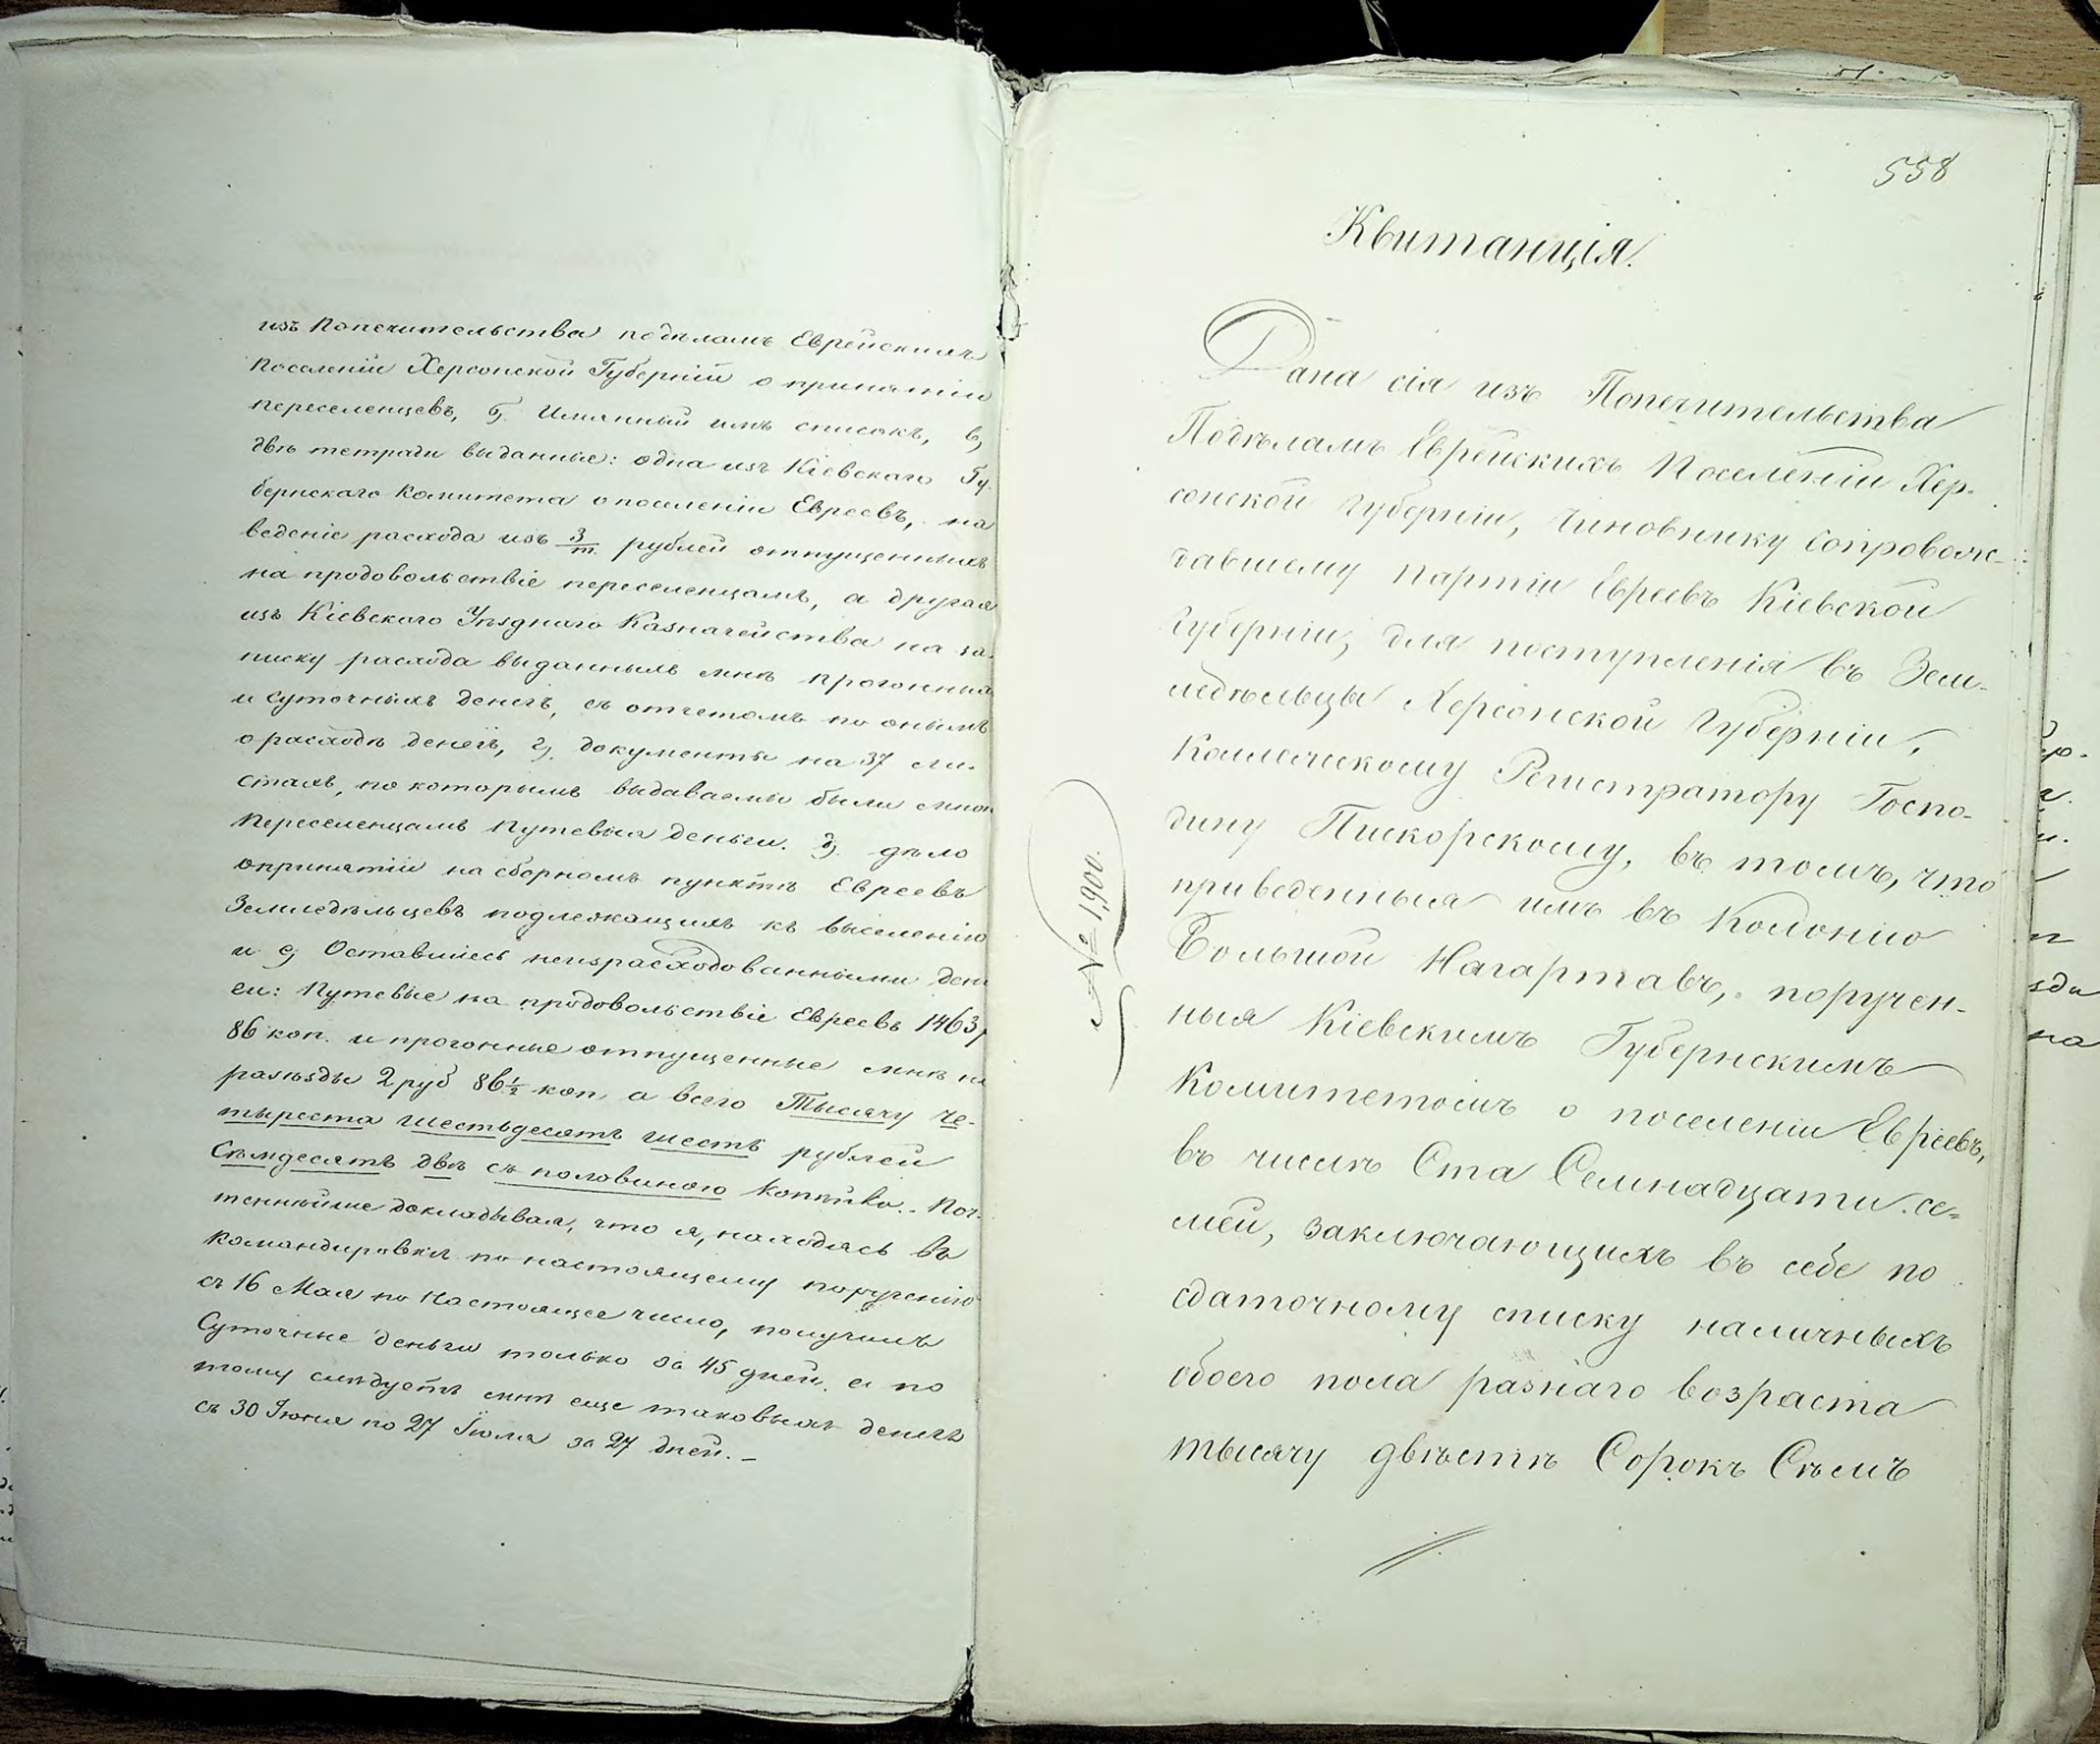 изъ Попечительства подѣламъ Еврейскихъ
Поселеній Херсонской Губерній о принятіи
переселенцевъ, б) Имянный имъ списокъ, в)
двѣ тетради выданные: одна изъ Кіевскаго Гу-
бернскаго Комитета о поселеніи Евреевъ, на
веденіе расхода изъ 3/т. рублей отпущенныхъ
на продовольствіе переселенцамъ, а другая
изъ Кіевскаго Уѣзднаго Казначейства на за-
писку расхода выданныхъ мнѣ прогонныхъ
и суточныхъ денегъ, съ отчетомъ по онымъ
о расходѣ денегъ, г) документы на 37 ли-
стахъ, по которымъ выдаваемы были мною
переселенцамъ путевыя деньги. д) дѣло
опринятіи на сборномъ пунктѣ Евреевъ
Земледѣльцевъ подлежащихъ къ выселенію
и е) Оставшіесь неизрасходованными день
ги: Путевые на продовольствіе Евреевъ 1463 р
86 коп. и прогонные отпущенные мнѣ на
разѣзды 2 руб 86 1/2 коп, а всего Тысячу че-
тыреста шестьдесятъ шесть рублей
Сѣмдесятъ двѣ съ половиною копѣйки. Поч-
теннѣйше докладывая, что я, находясь въ
командировкѣ по настоящему порученію
съ 16 Мая по настоящее число, получилъ
Суточные деньги только за 45 дней, а по
тому слѣдуетъ мнѣ еще таковыхъ денегъ
съ 30 Іюня по 27 Іюля за 27 дней. –
558
Квитанція.
Дана сія изъ Попечительства
Подѣламъ Еврейскихъ Поселеніи Хер-
сонской Губерніи, Чиновнику Сопровож-
давшему партіи Евреевъ Кіевской
Губерніи, для поступленія въ Зем-
ледѣльцы Херсонской Губерніи,
Коллежскому Регистратору Госпо-
дину Пискорскому, въ томъ, что
приведенныя имъ въ Колонію
Большой Нагартавъ, поручен-
ныя Кіевскимъ Губернскимъ
Комитетомъ о поселеніи Евреевъ,
въ числѣ Ста Семнадцати се-
мей, заключающихъ въ себе по
сдаточному списку наличныхъ
обоего пола разнаго возраста
тысячу двѣстѣ Сорокъ Сѣмъ
№ 1,900.